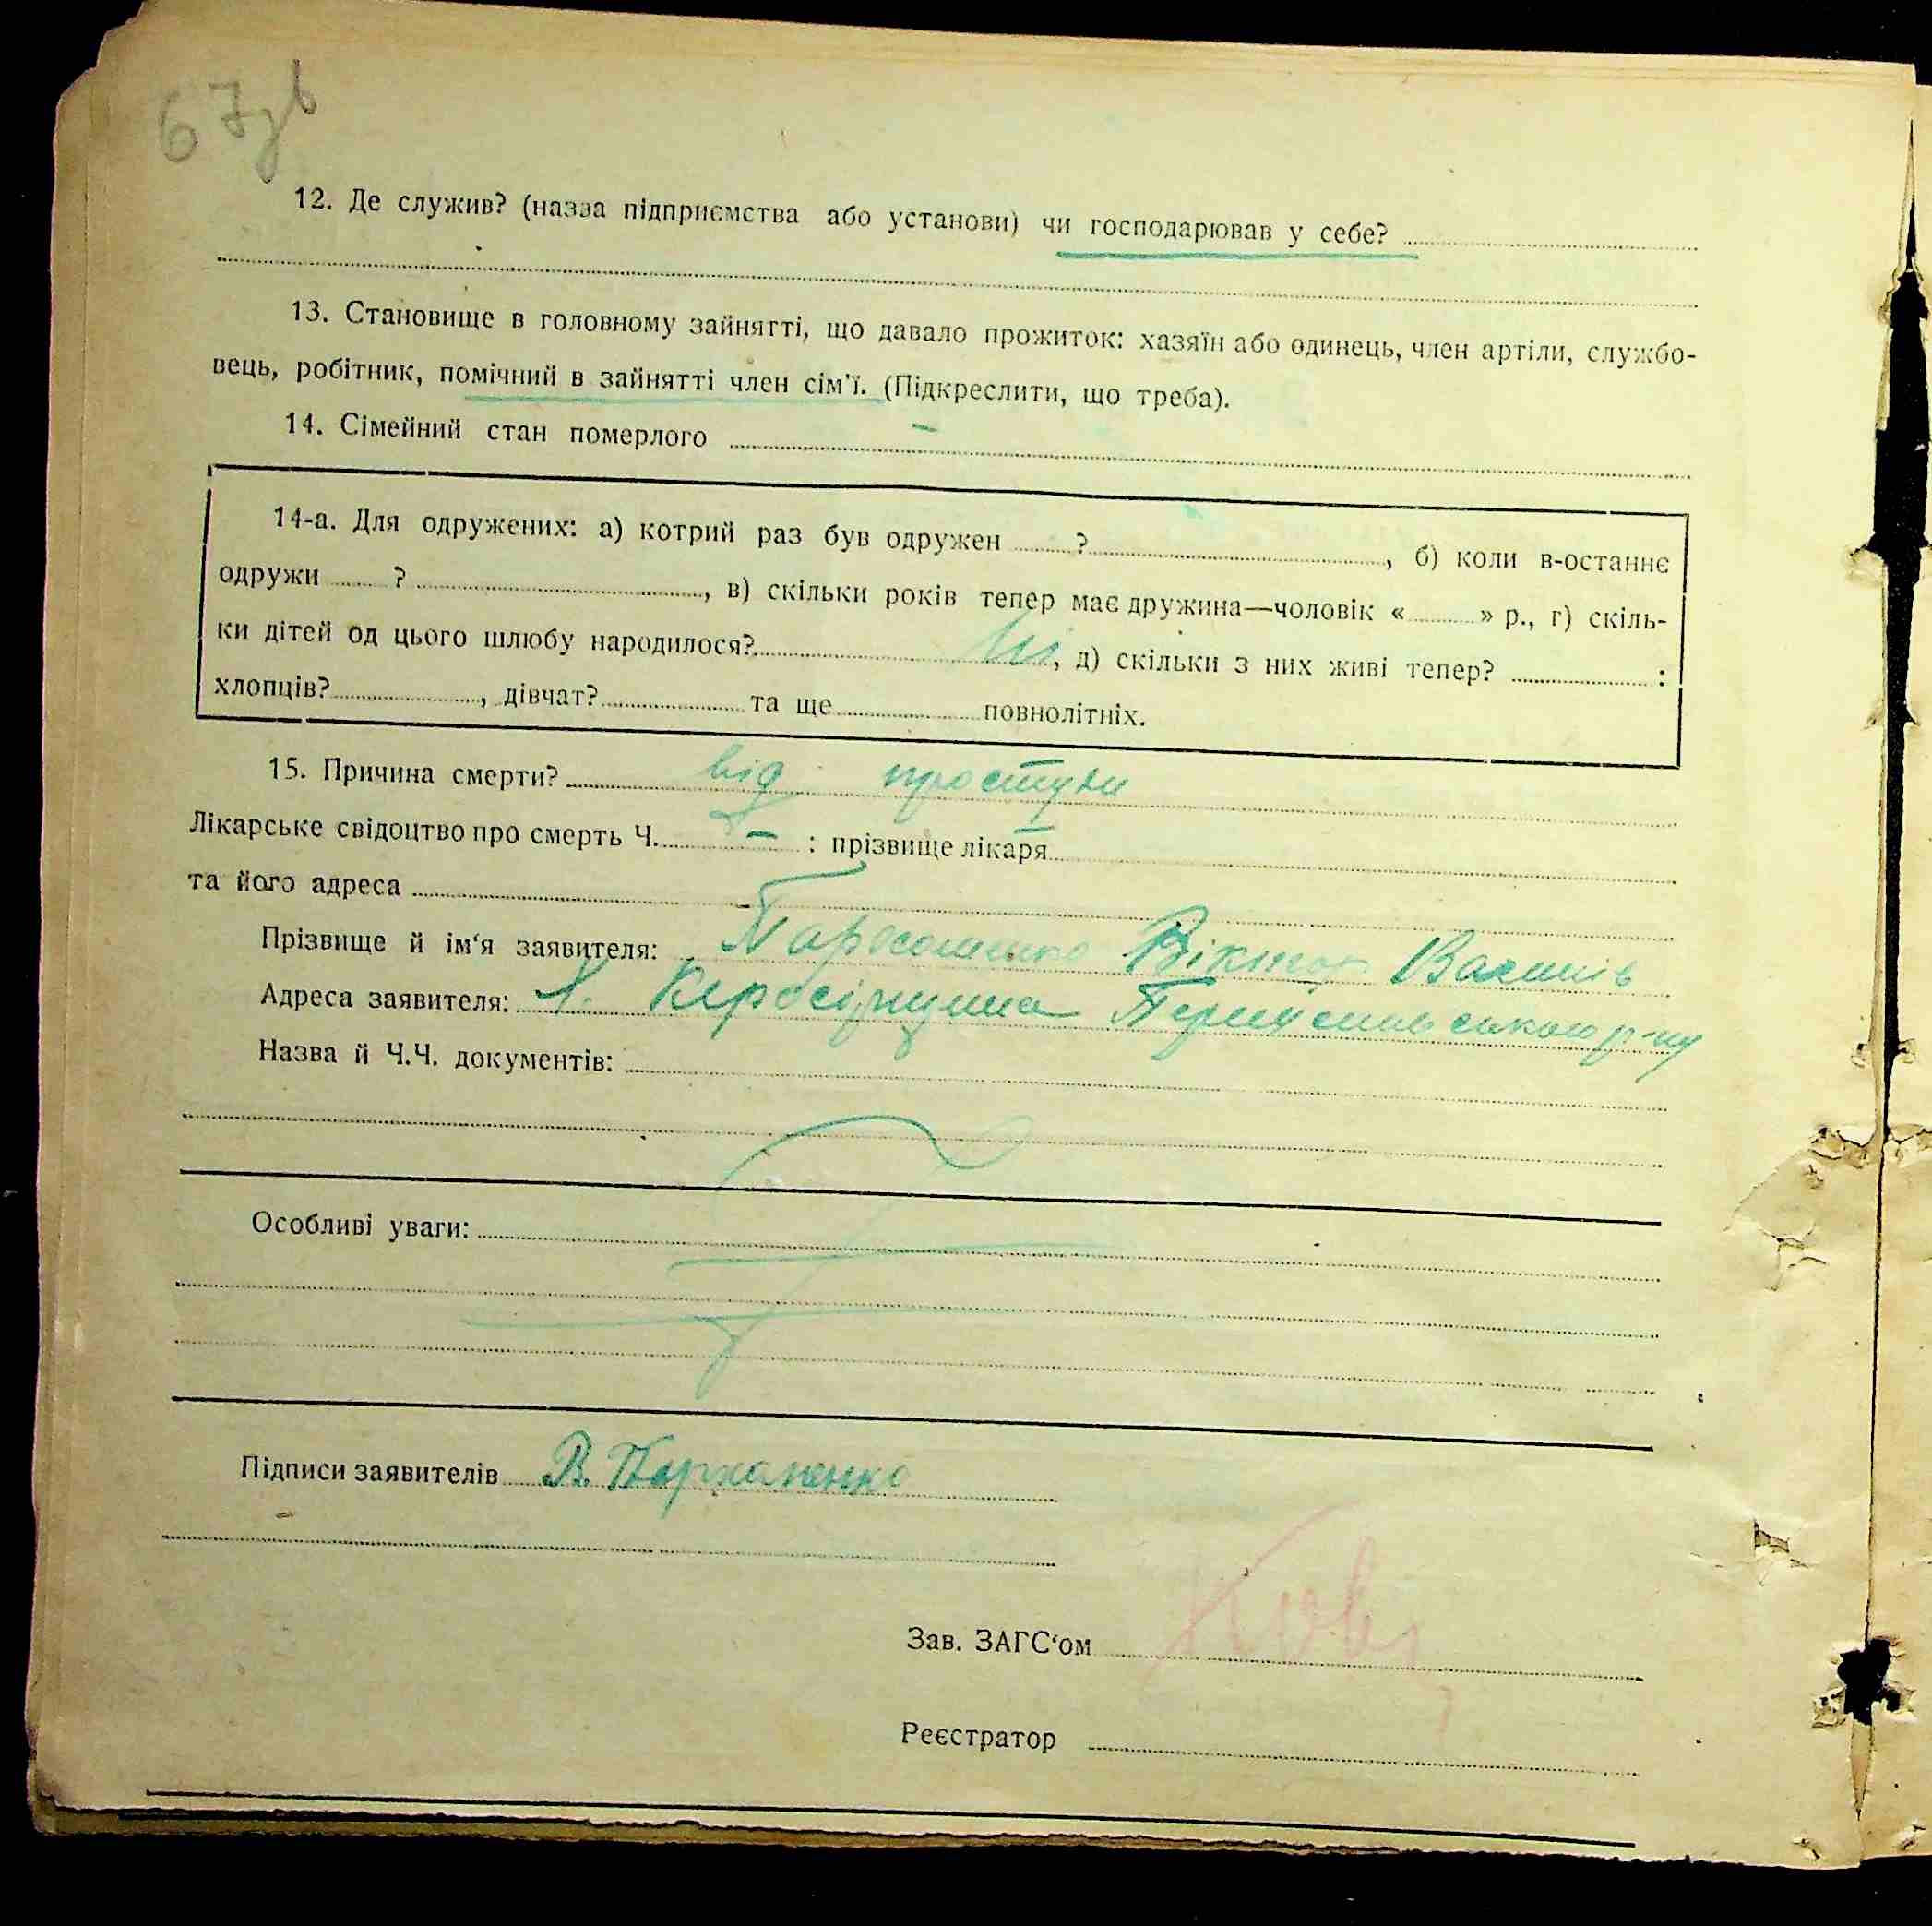 67зв
12. Де служив? (назва підприємства або установи) чи господарював у себе?
13. Становище в головному зайнятті, що давало прожиток: хазяїн або одинець, член артіли, службо-
вець, робітник, помічний в зайнятті член сім'ї. (Підкреслити, що треба).
14. Сімейний стан померлого –
14-а. Для одружених: а) котрий раз був одружен ?, б) коли в-останнє
одружи ?, в) скільки років тепер має дружина—чоловік « » р., г) скіль-
ки дітей од цього шлюбу народилося?, д) скільки з них живі тепер? :
хлопців?, дівчат? та ще повнолітніх.
15. Причина смерти? від простуди
Лікарське свідоцтво про смерть Ч. – : прізвище лікаря –
та його адреса –
Прізвище й ім'я заявителя: Віктор
Адреса заявителя: р-ну
Назва й Ч.Ч. документів:
Особливі уваги:
Підписи заявителів В. Пархоменко
Зав. ЗАГС'ом
Реєстратор